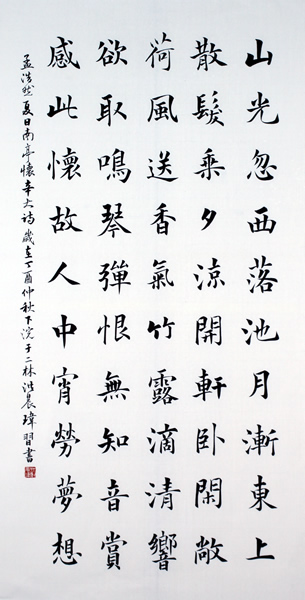 山光忽西落池月漸東上
散髮乘夕涼開軒卧閑敞
荷風送香氣竹露滴清響
欲取鳴琴彈恨無知音賞
感此懷故人中宵勞夢想
孟浩然夏日南亭懷辛大詩歲在丁酉仲秋下浣于二林洪晨瑋習書